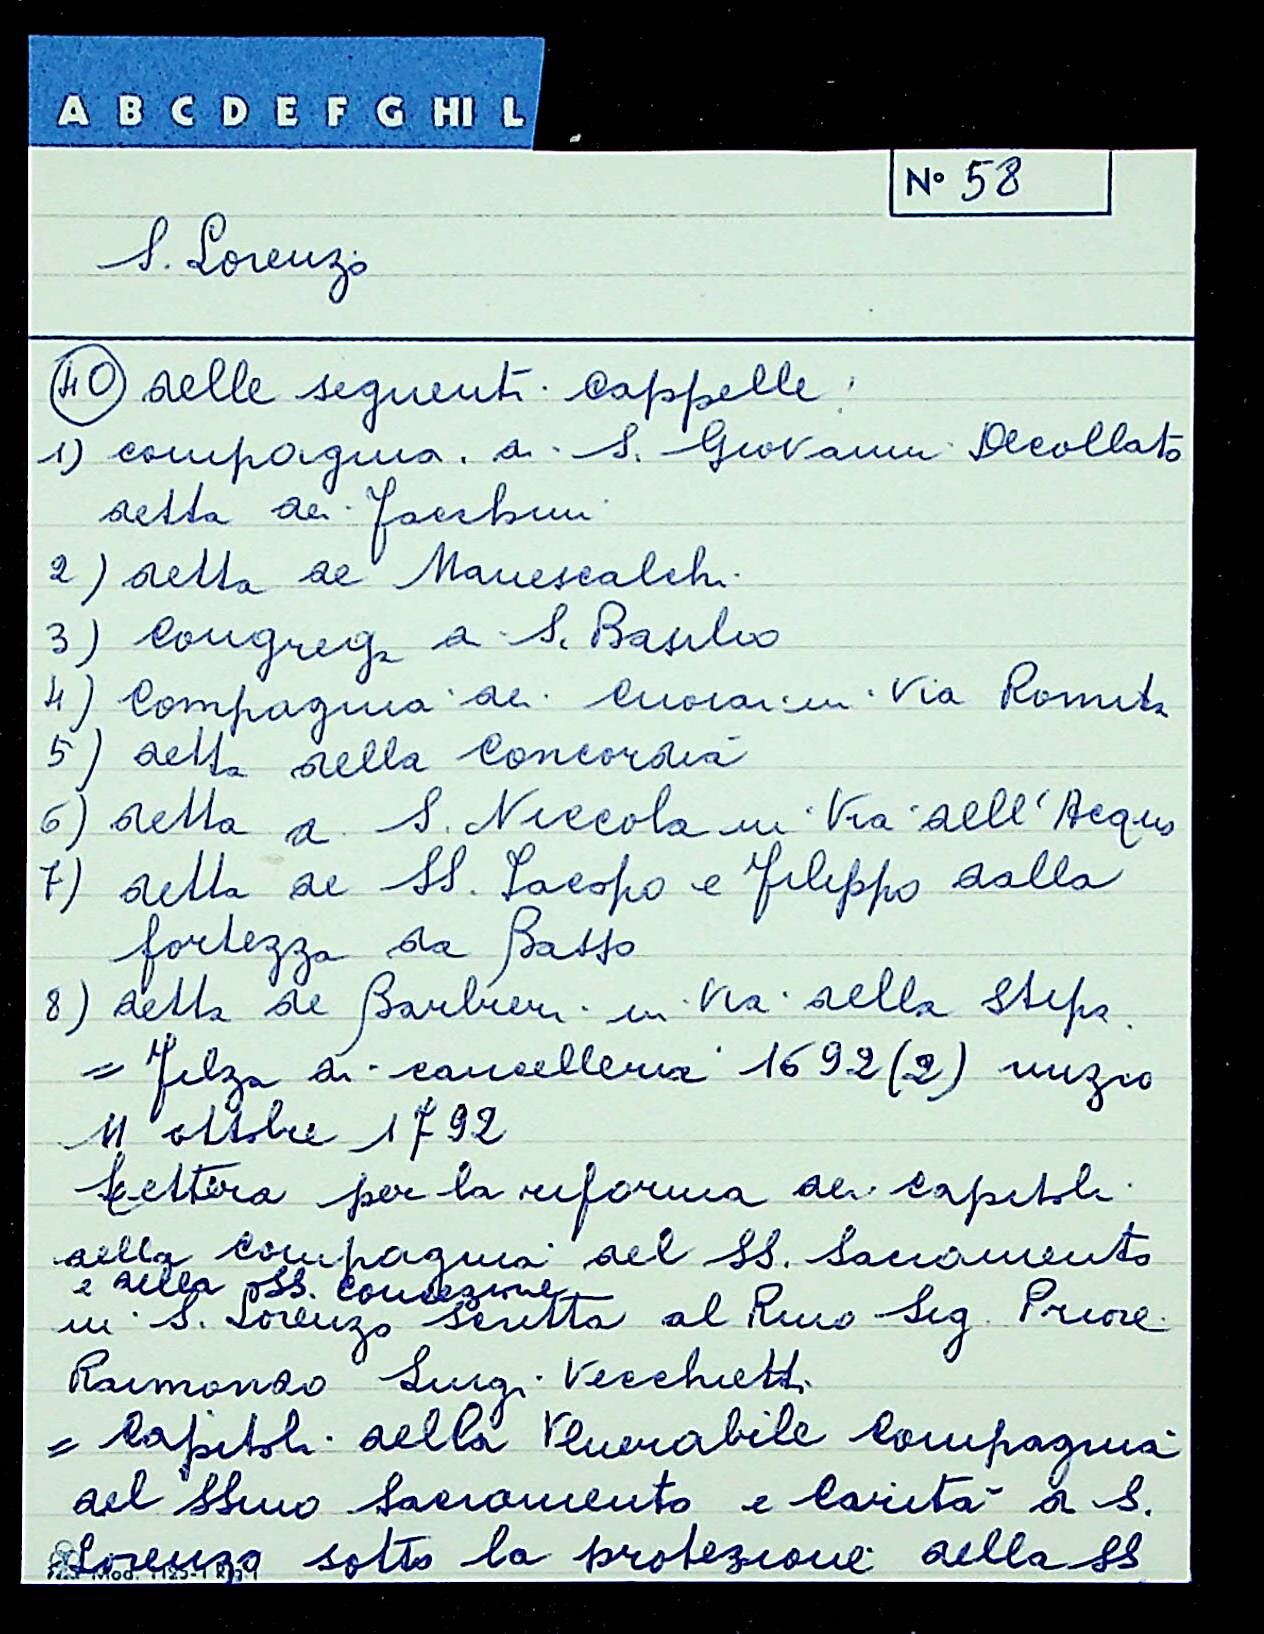 A B C D E F G HI L
N° 58
S. Lorenzo
40 delle seguenti cappelle:
1) compagnia di S. Giovanni Decollato
detta dei
2) detta de Manescalchi
3) Congreg. a S. Basilio
4) Compagnia dei Cuoiai in Via Romita
5) detta della Concordia
6) detta a S. Niccola in Via dell'Acqua
7) detta de SS. Jacopo e Filippo dalla
fortezza da Basso
8) detta de Barbieri in Via della Stipa.
= Filza di cancelleria 1692(2) inizio
11 ottobre 1792
Lettera per la riforma dei capitoli
della compagnia del SS. Sacramento
e della SS. Concezione
in S. Lorenzo scritta al Rmo Sig. Priore
Raimondo Luigi Vecchietti
= Capitoli della Venerabile Compagnia
del SSmo Sacramento e Carità a S.
Lorenzo sotto la protezione della SS